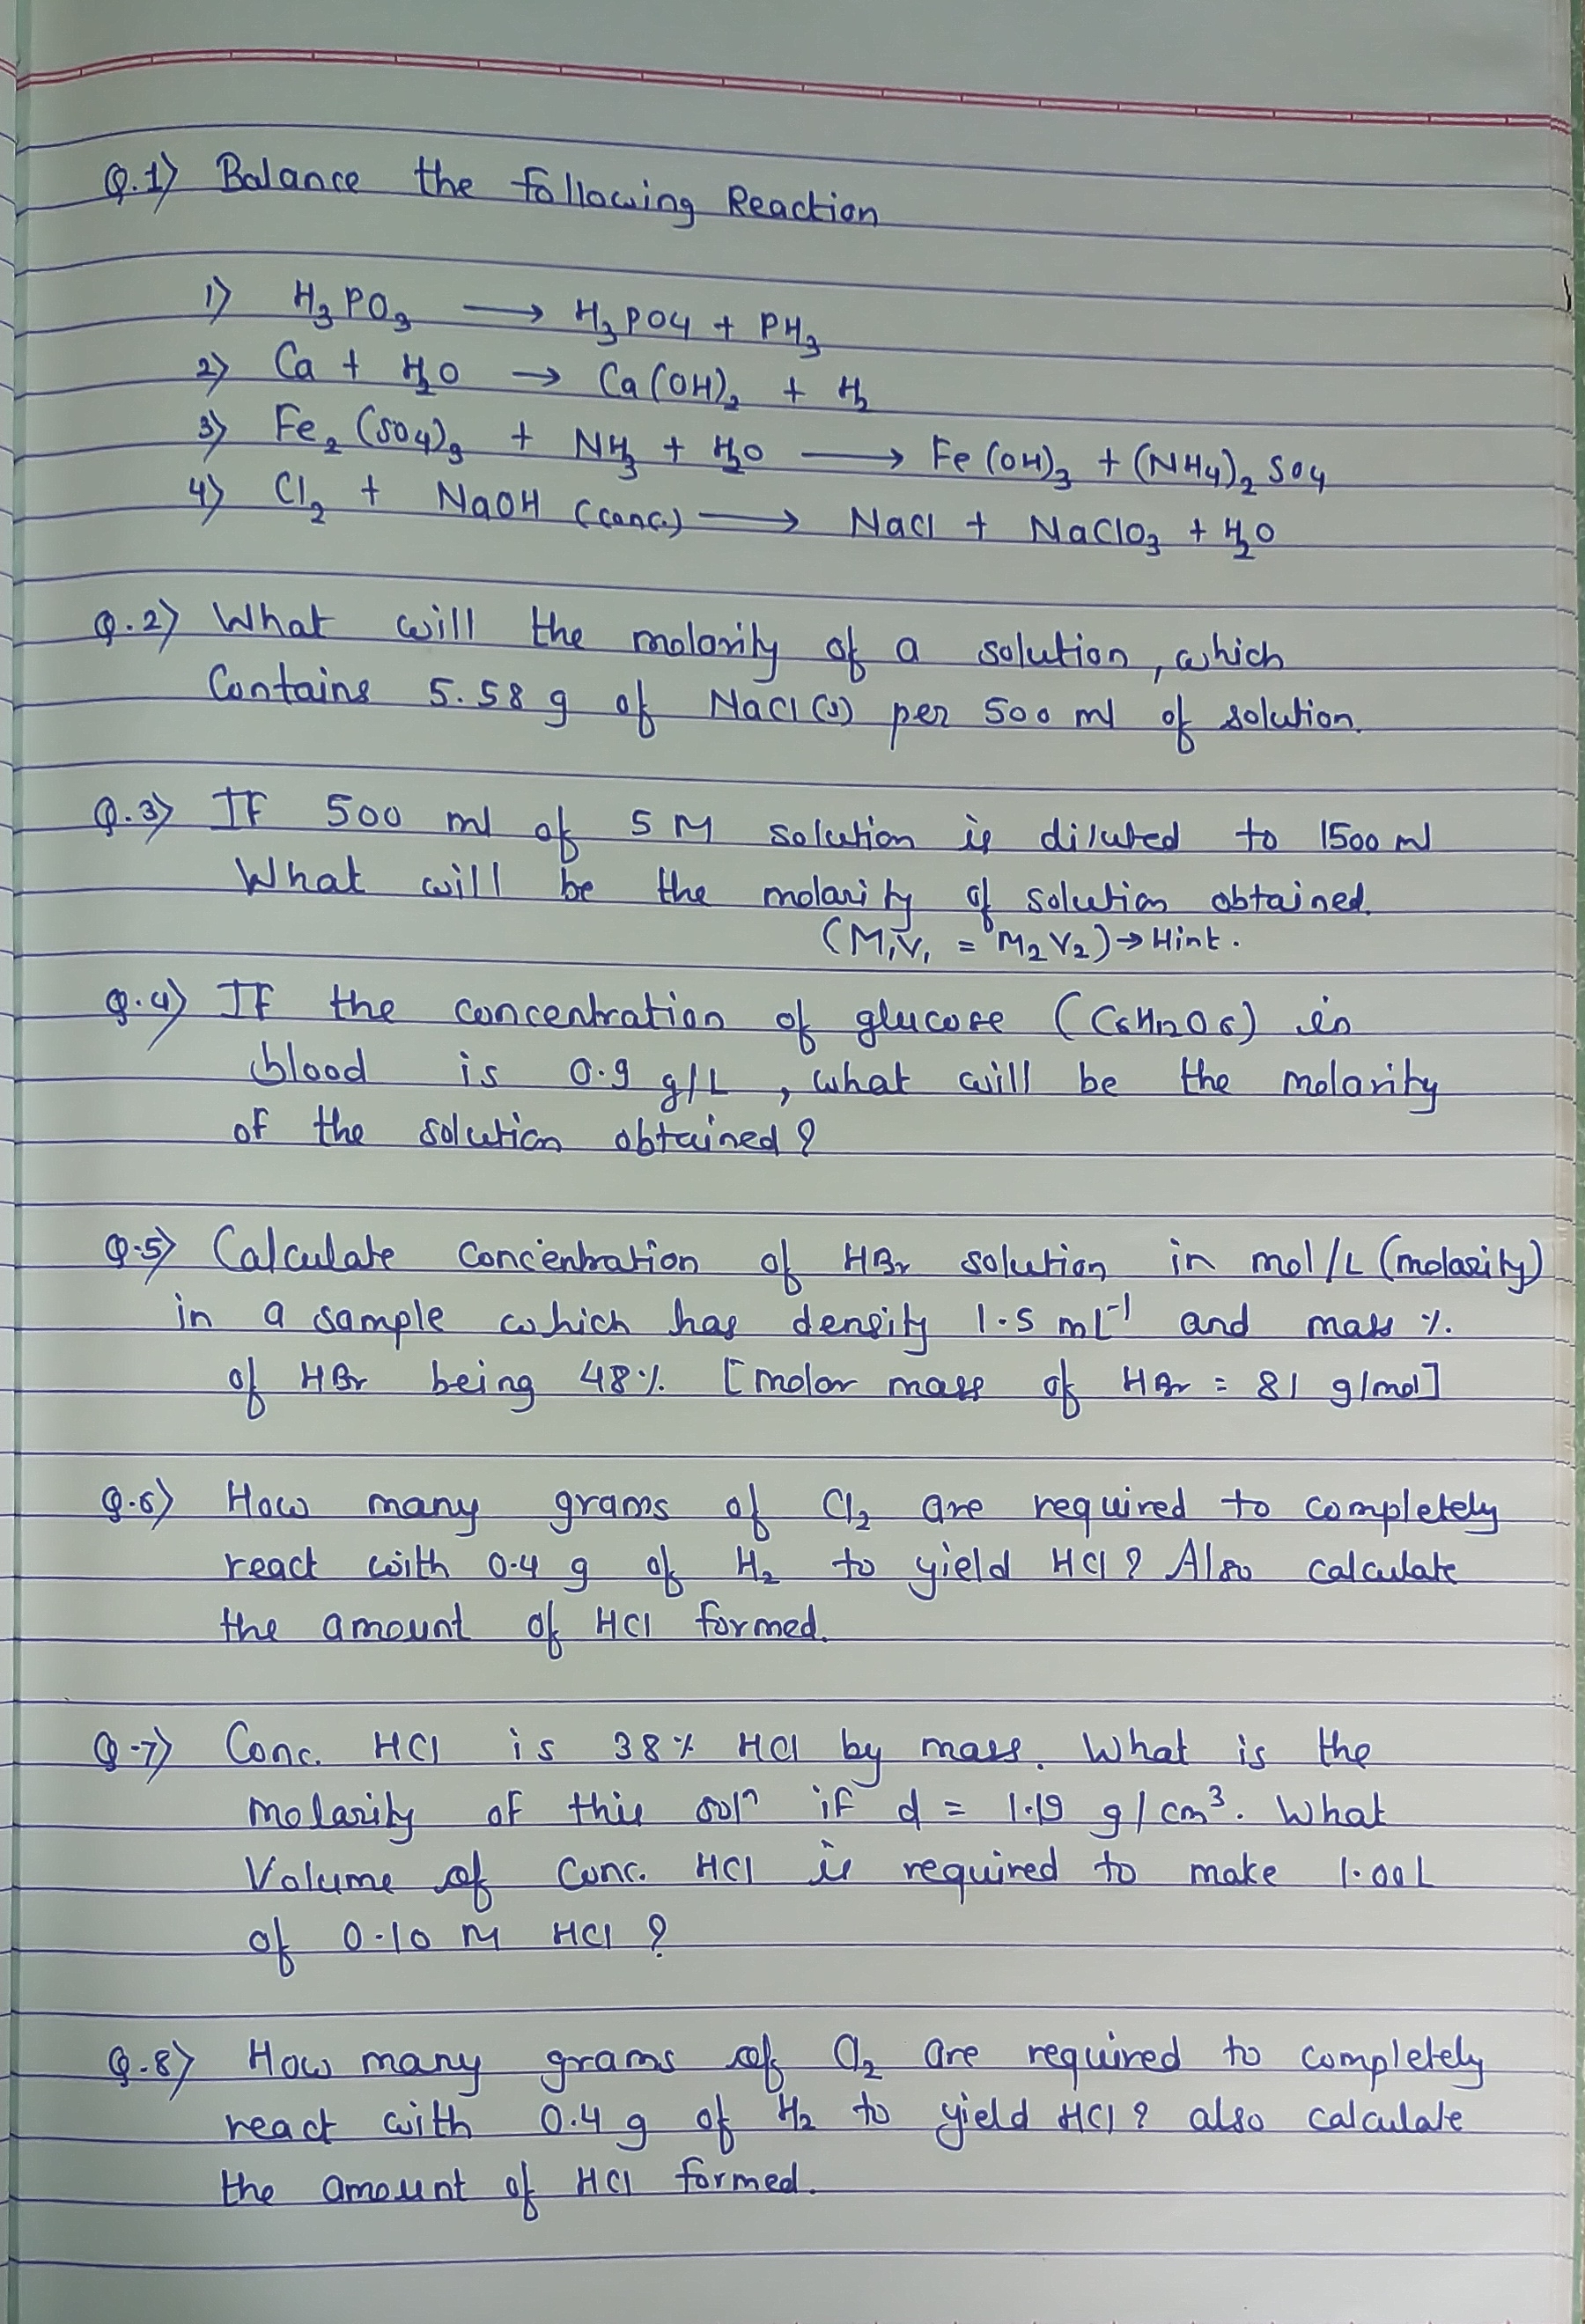 Q.1) Balance the following Reaction
1) H₃PO₃ ⟶ H₃PO4 + PH₃
2) Ca + H₂O → Ca(OH)₂ + H₂
3) Fe₂(SO4)₃ + NH₃ + H₂O ⟶ Fe(OH)₃ + (NH4)₂ SO4
4) Cl₂ + NaOH (conc.) ⟶ NaCl + NaClO₃ + H₂O
Q.2) What will the molarity of a solution, which
Contains 5.58 g of NaCl(s) per 500 ml of solution.
Q.3) IF 500 ml of 5 M solution is diluted to 1500 ml
What will be the molarity of solution obtained.
(M₁V₁ = M₂V₂) → Hint.
Q.4) IF the concentration of glucose (C6H12O6) in
blood is 0.9 g/L, what will be the molarity
of the solution obtained?
Q.5) Calculate concentration of HBr solution in mol/L (molarity)
in a sample which has density 1.5 mL⁻¹ and mass %
of HBr being 48% [molar mass of HBr = 81 g/mol]
Q.6) How many grams of Cl₂ are required to completely
react with 0.4 g of H₂ to yield HCl? Also calculate
the amount of HCl formed.
Q.7) Conc. HCl is 38% HCl by mass. What is the
molarity of this solⁿ if d = 1.19 g/cm³. What
Volume of Conc. HCl is required to make 1.00L
of 0.10 M HCl?
Q.8) How many grams of Cl₂ are required to completely
react with 0.4 g of H₂ to yield HCl? also calculate
the amount of HCl formed.